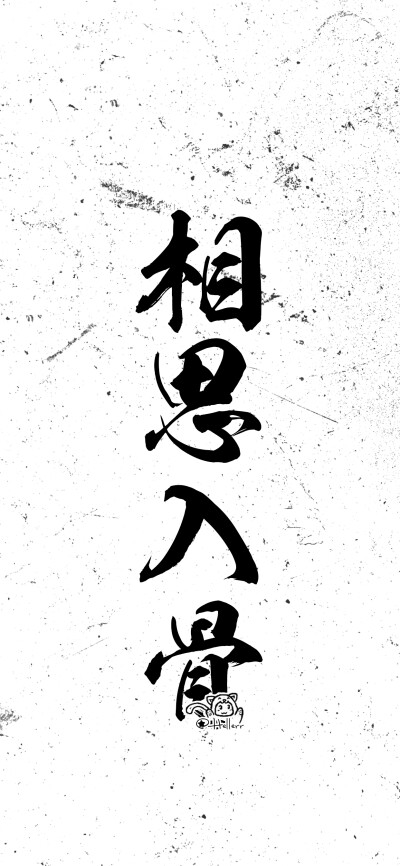 相思入骨